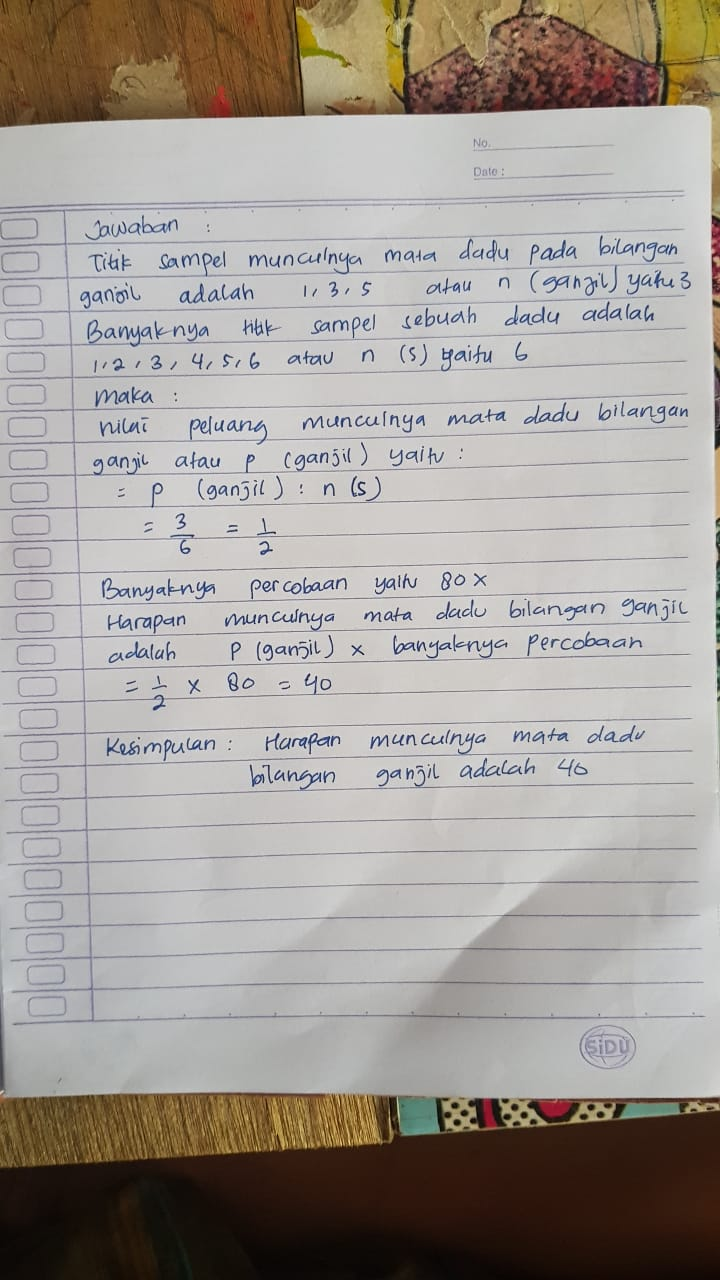 No.
Date :
Jawaban :
Titik sampel munculnya mata dadu pada bilangan
ganjil adalah 1, 3, 5 atau n (ganjil) yaitu 3
Banyaknya titik sampel sebuah dadu adalah
1, 2, 3, 4, 5, 6 atau n (s) yaitu 6
maka :
nilai peluang munculnya mata dadu bilangan
ganjil atau p (ganjil) yaitu :
= p (ganjil) : n (s)
= 3/6 = 1/2
Banyaknya percobaan yaitu 80 x
Harapan munculnya mata dadu bilangan ganjil
adalah P (ganjil) x banyaknya percobaan
= 1/2 x 80 = 40
Kesimpulan : Harapan munculnya mata dadu
bilangan ganjil adalah 40
SiDU